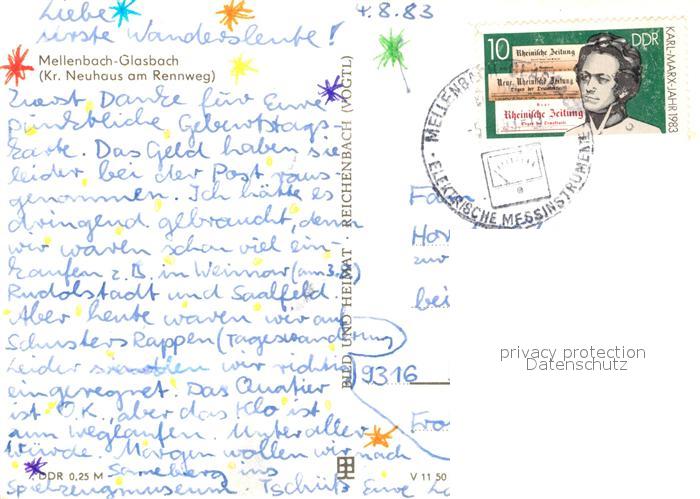 4.8.83
Liebe
Wandersleute!
Mellenbach-Glasbach
(Kr. Neuhaus am Rennweg)
Zuerst Danke für Eure
pünktliche Geburtstags-
karte. Das Geld haben sie
leider bei der Post raus-
genommen. Ich hätte es
dringend gebraucht, denn
wir waren schon viel ein-
kaufen z.B. in Weimar (am 3.8.)
Rudolstadt und Saalfeld.
Aber heute waren wir auf
Schusters Rappen (Tageswanderung)
Leider wir richtig
eingeregnet. Das Quatier
ist O.K., aber das Klo ist
zum Weglaufen. Unter aller
Würde. Morgen wollen wir nach
Sonneberg ins
Spielzeugmuseum. Tschüß Eure
DDR 0,25 M
BILD UND HEIMAT · REICHENBACH (VOGTL)
V 11 50
10
DDR
KARL-MARX-JAHR 1983
Rheinische Zeitung
Neue Rheinische Zeitung
Organ der Demokratie
Neue
Rheinische Zeitung
Organ der Demokratie
MELLENBACH
ELEKTRISCHE MESSINSTRUMENTE
bei
9316
privacy protection
Datenschutz